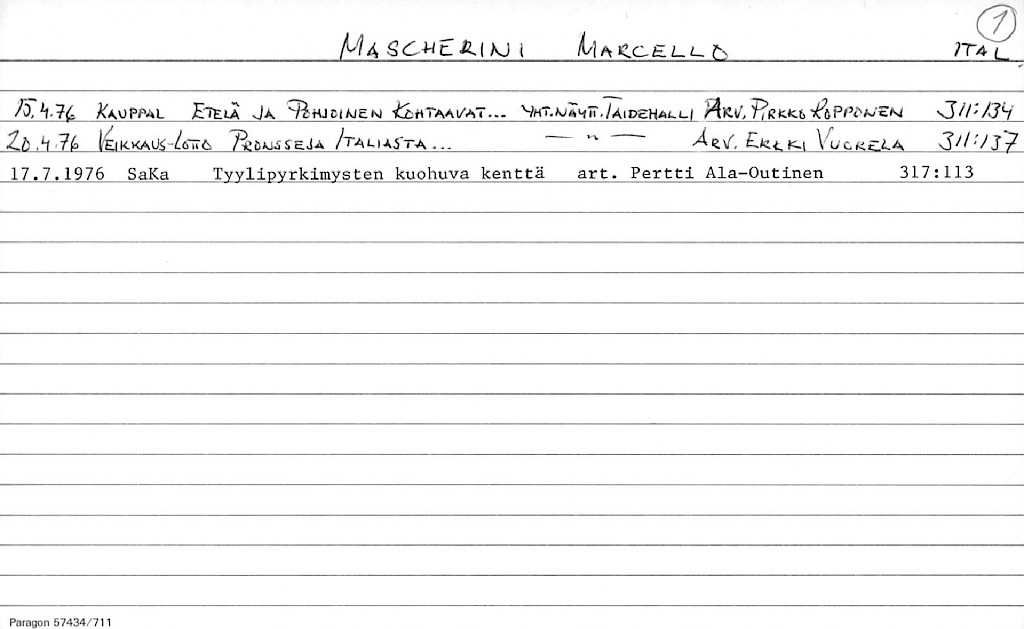 1
MASCHERINI MARCELLO ITAL
15.4.76 KAUPPAL ETELÄ JA POHJOINEN KOHTAAVAT... YHT.NÄYTT.TAIDEHALLI ARV. PIRKKO LOPPONEN 311:134
20.4.76 VEIKKAUS-LOTTO PRONSSEJA ITALIASTA... — " — ARV. ERKKI VUOKELA 311:137
17.7.1976 SaKa Tyylipyrkimysten kuohuva kenttä art. Pertti Ala-Outinen 317:113
Paragon 57434/711